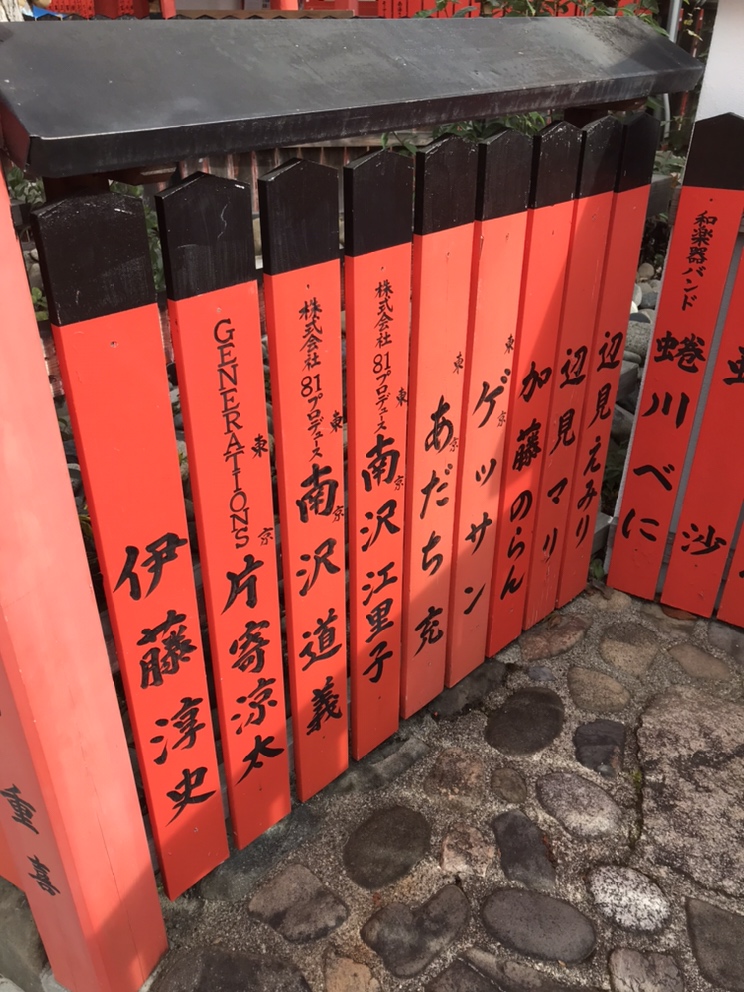 重喜
伊藤淳史
GENERATIONS
東京
片寄涼太
株式会社81プロデュース
東京
南沢道義
株式会社81プロデュース
東京
南沢江里子
東京
あだち充
東京
ゲッサン
加藤のらん
辺見マリ
辺見えみり
和楽器バンド
蜷川べに
沙